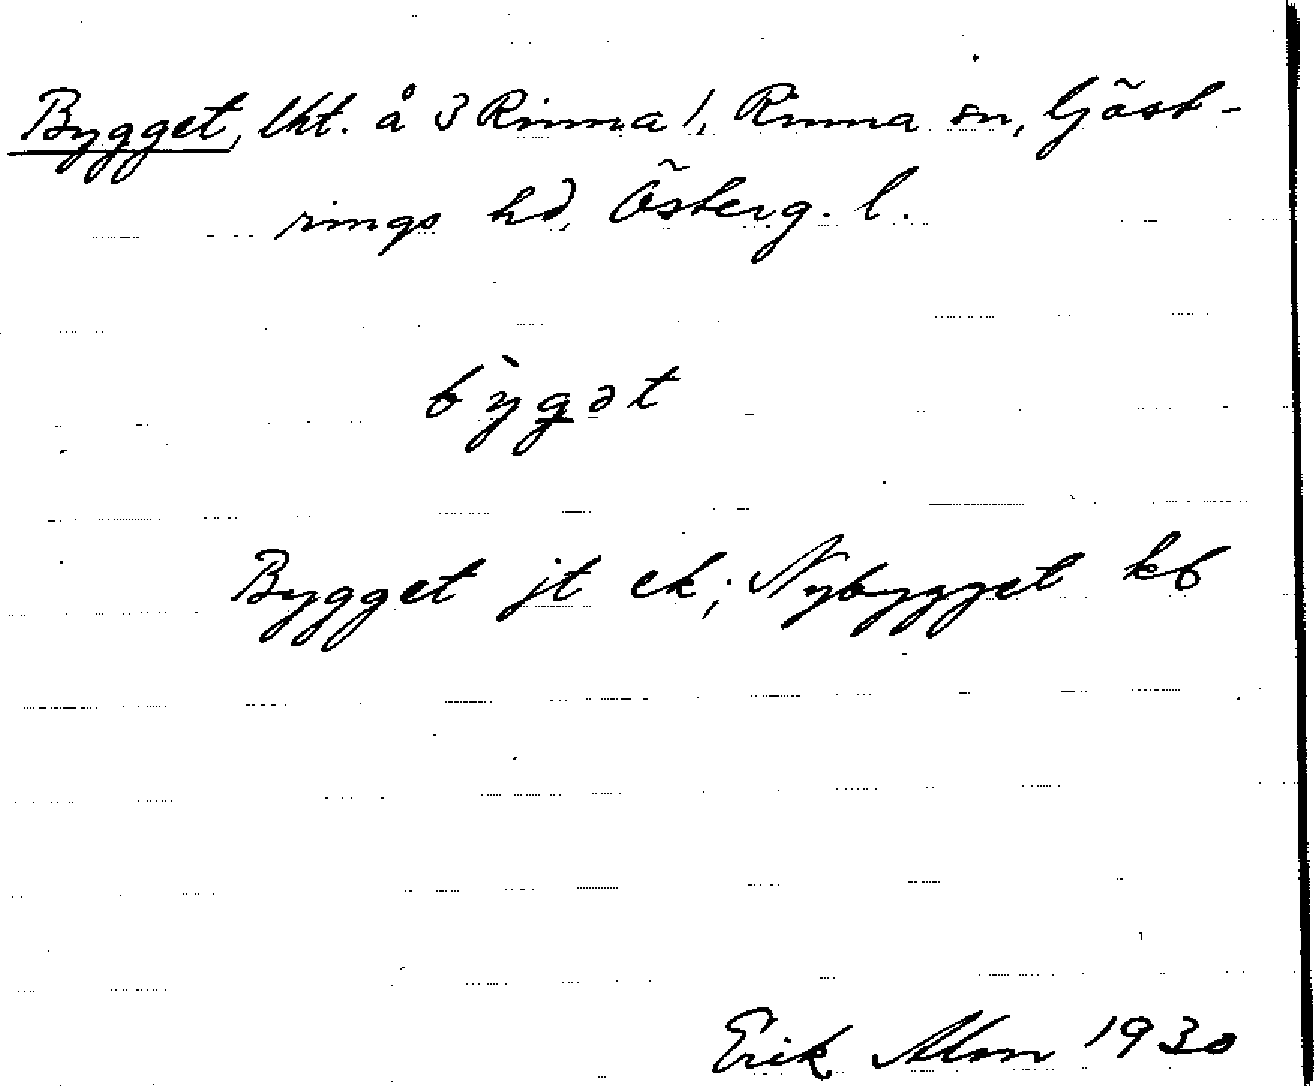 Bygget, lht. å 3 Rinna 1, Rinna sn, Göst-
rings hd, Österg. l.
bỳgət
Bygget jt ek; Nybygget kb
Erik Alm 1930